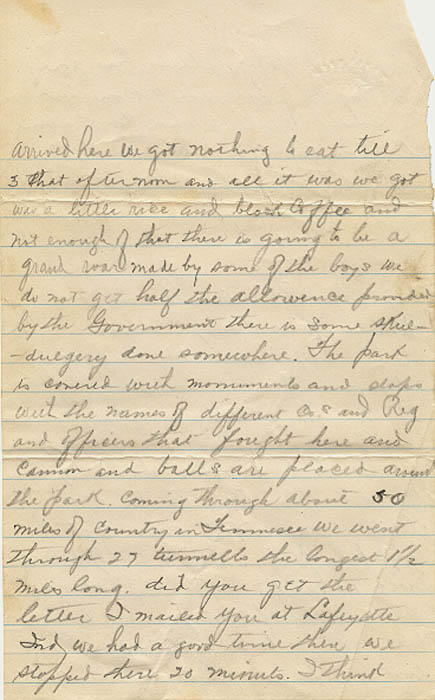 arrived here we got nothing to eat till
3 that afternoon and all it was we got
was a little rice and black Coffee and
not enough of that there is going to be a
grand roar made by some of the boys we
do not get half the allowence provided
by the Government there is some skul-
-dugery done somewhere. The park
is covered with monuments and slaps
with the names of different Co.s and Reg
and officers that fought here and
cannon and balls are placed around
the park. Coming through about 50
miles of Country in Tennessee We went
through 27 tunnells the longest 1 1/2
miles long. did you get the
letter I mailed you at Lafeyette
Ind, we had a good time there we
stopped there 20 minuts. I think